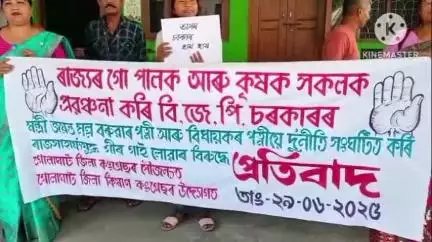 অসম
চৰকাৰ
হায় হায়
KINEMASTER
ৰাজ্যৰ গো পালক আৰু কৃষক সকলক
প্ৰৱঞ্চনা কৰি বি.জে.পি. চৰকাৰৰ
মন্ত্ৰী জয়ন্ত মল্ল বৰুৱাৰ পত্নী আৰু বিধায়কৰ পত্নীয়ে দুৰ্নীতি সংঘটিত কৰি
ৰাজসাহায্যপ্ৰাপ্ত গীৰ গাই লোৱাৰ বিৰুদ্ধে
গোলাঘাট জিলা কংগ্ৰেছৰ সৌজন্যত
গোলাঘাট জিলা কিষাণ কংগ্ৰেছৰ উদ্যোগত
প্ৰতিবাদ
তাং-২৯-০৬-২০২৫